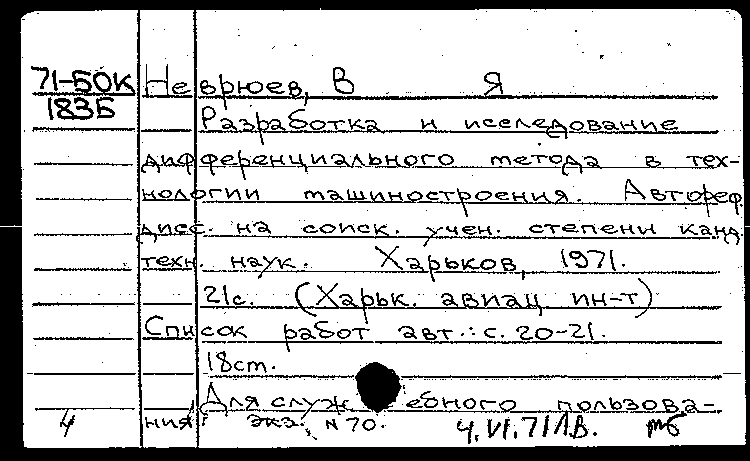 71-БОК Неврюев, В Я
183Б Разработка и исследование
дифференциального метода в тех-
нологии машиностроения. Автореф.
дисс. на соиск. учен. степени канд.
техн. наук. Харьков, 1971.
21с. (Харьк. авиац. ин-т)
Список работ авт.: с. 20-21.
18ст.
Для служебного пользова-
4 ния экз. N 70. 4.VI.71 Л.В. тб